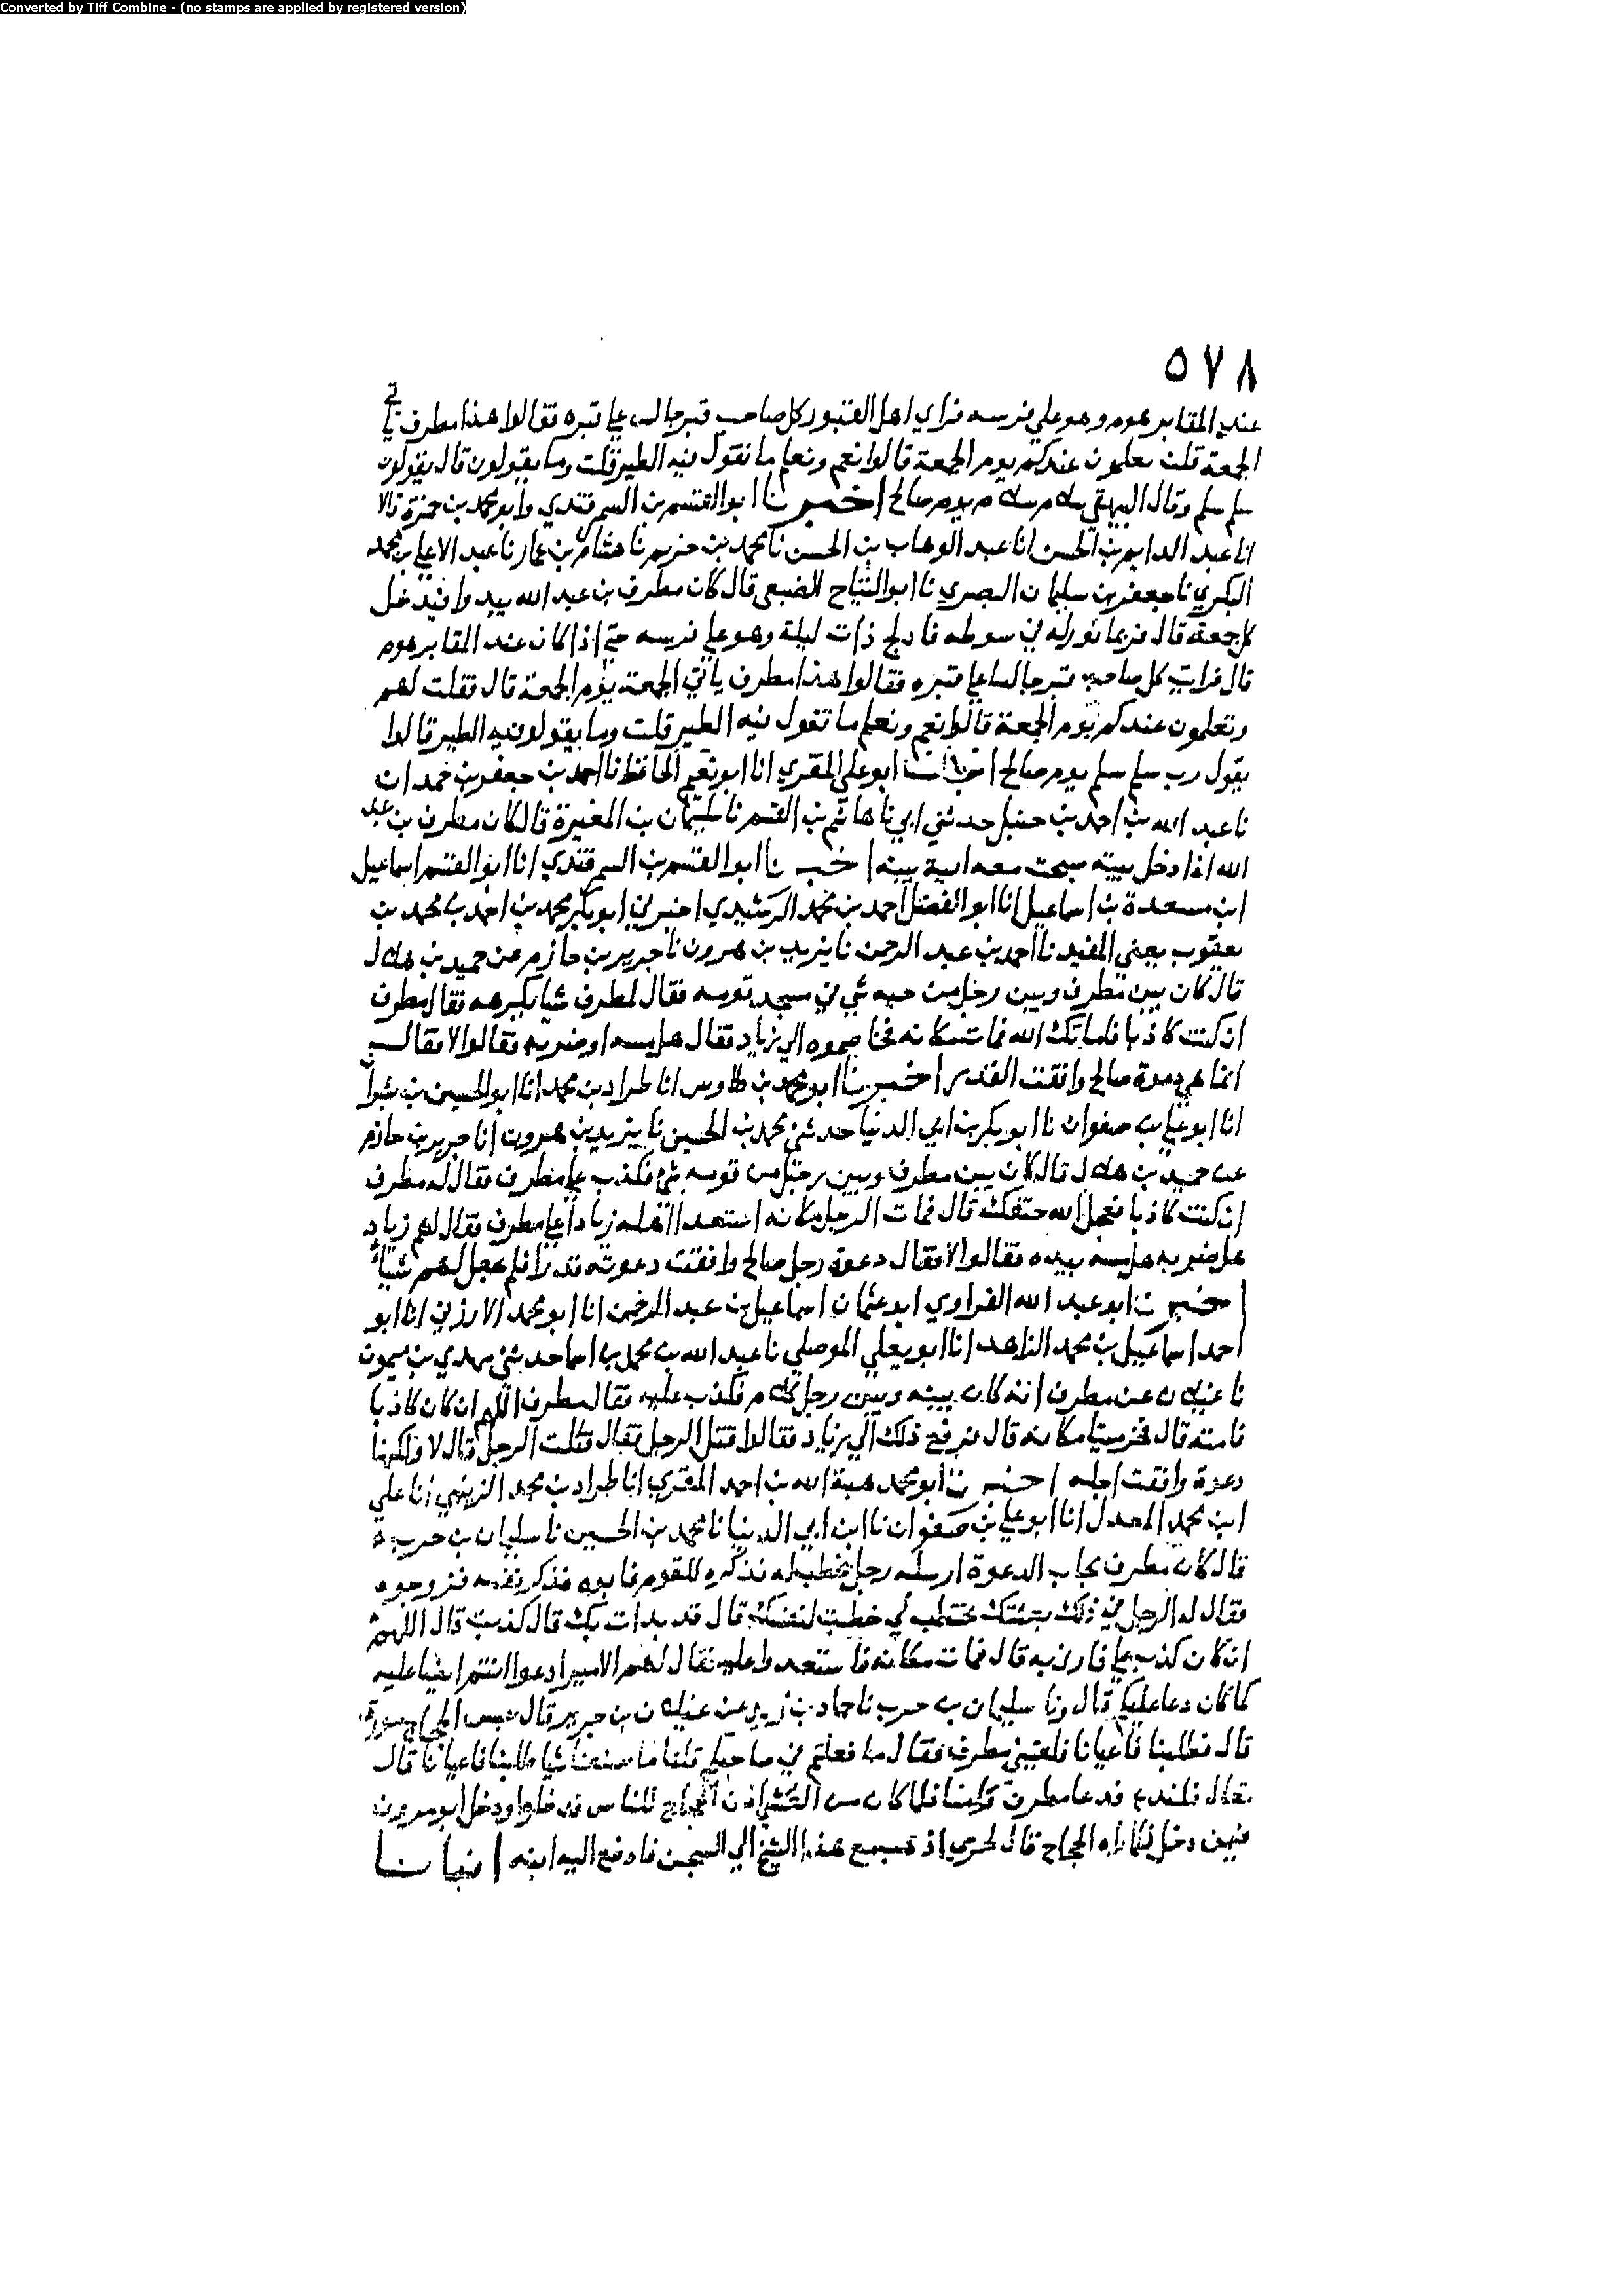 Converted by Tiff Combine - (no stamps are applied by registered version)
٥٧٨
عند المقابر هوم وهو على فرسه فراي اهل القبور كل صاحب قبر جالس على قبره فقالوا هذا مطرف ياتي
الجمعة قلت تعلمون عندكم يوم الجمعة قالوا نعم ونعلم ما تقول فيه الطير قلت وما يقولون قال يقولون
سلم سلم وقال البيهقي سلام سلام يوم صالح اخبرنا ابو القسم بن السمرقندي وابو محمد بن حمزة قالا
انا عبد الدايم بن الحسن انا عبد الوهاب بن الحسن نا محمد بن خريم نا هشام بن عمار نا عبد الاعلى بن محمد
البكري نا جعفر بن سليمان البصري نا ابو التياح الضبعي قال كان مطرف بن عبد الله يبدوا فيدخل
كل جمعة قال فربما نور له في سوطه فادلج ذات ليلة وهو على فرسه حتى اذا كان عند المقابر هوم
قال فرايت كل صاحب قبر جالسا على قبره فقالوا هذا مطرف ياتي الجمعة يوم الجمعة قال فقلت لهم
وتعلمون عندكم يوم الجمعة قالوا نعم ونعلم ما تقول فيه الطير قلت وما يقولون فيه الطير قالوا
يقول رب سلم سلم يوم صالح ابو علي المقري انا ابو نعيم الحافظ نا احمد بن جعفر بن حمدان
نا عبد الله بن احمد بن حنبل حدثني ابي نا هاشم بن القسم نا سليمان بن المغيرة قال كان مطرف بن عبد
الله اذا دخل بيته سبحت معه انية بيته اخبرنا ابو القسم بن السمرقندي انا ابو القسم اسماعيل
ابن مسعدة بن اسماعيل انا ابو الفضل احمد بن محمد الرشيدي اخبرني ابو بكر محمد بن احمد بن محمد بن
يعقوب يعني المفيد نا احمد بن عبد الرحمن نا يزيد بن هرون نا جرير بن حازم عن حميد بن هلال
قال كان بين مطرف وبين رجل من حيه شي في مسجد قومه فقال لمطرف شيا يكرهه فقال مطرف
ان كنت كاذبا فاماتك الله فمات مكانه فخاصموه الى زياد فقال هل مسه او ضربه فقالوا لا فقال
انما هي دعوة صالح وافقت القدر اخبرنا ابو محمد بن طاوس انا طراد بن محمد انا ابو الحسين بن بشران
انا ابو علي بن صفوان نا ابو بكر بن ابي الدنيا حدثني محمد بن الحسين نا يزيد بن هرون انا جرير بن حازم
عن حميد بن هلال قال كان بين مطرف وبين رجل من قومه شي فكذب على مطرف فقال له مطرف
ان كنت كاذبا فعجل الله حتفك قال فمات الرجل مكانه استعدا اهله زيادا على مطرف فقال لهم زياد
هل ضربه هل مسه بيده فقالوا لا فقال دعوة رجل صالح وافقت دعوته قدرا فلم يجعل لهم شيا
اخبرنا ابو عبد الله الفراوي ابو عثمان اسماعيل بن عبد الرحمن انا ابو محمد انا ابو
احمد اسماعيل بن محمد الزاهد انا ابو يعلي الموصلي نا عبد الله بن محمد بن اسما حدثني مهدي بن ميمون
نا غيلان عن مطرف انه كان بينه وبين رجل كلام فكذب عليه فقال مطرف اللهم ان كان كاذبا
فامته قال فخر ميتا مكانه قال فرفع ذلك الى زياد فقالوا قتل الرجل فقال قتلت الرجل قال لا ولكنها
دعوة وافقت اجله اخبرنا ابو محمد هبة الله بن احمد المقري انا طراد بن محمد الزينبي انا علي
ابن محمد المعدل انا ابو علي بن صفوان نا ابن ابي الدنيا نا محمد بن الحسين نا سليمان بن حرب
قال كان مطرف مجاب الدعوة ارسله رجل يخطب له فذكره للقوم فابوه فذكر نفسه فزوجوه
فقال له الرجل في ذلك بعثتك تخطب لي خطبت لنفسك قال قد بدات بك قال كذبت قال اللهم
ان كان كذب علي فارني به قال فمات مكانه فاستعدوا عليه فقال لهم الامير ادعوا انتم ايضا عليه
كما كان دعا عليكم قال ونا سليمان بن حرب نا حماد بن زيد عن غيلان بن جرير قال حبس الحجاج مورق
قال فطلبنا فاعيانا فلقيني مطرف فقال ما فعلتم في صاحبكم قلنا ما صنعنا شيا طلبنا فاعيانا قال
تعال فلندع فدعا مطرف وامنا فلما كان من العشي اذن الحجاج للناس فدخلوا ودخل ابو مورق
فيمن دخل فلما راه الحجاج قال لحرسي اذهب مع هذا الشيخ الي السجن فادفع اليه ابنه انبانا